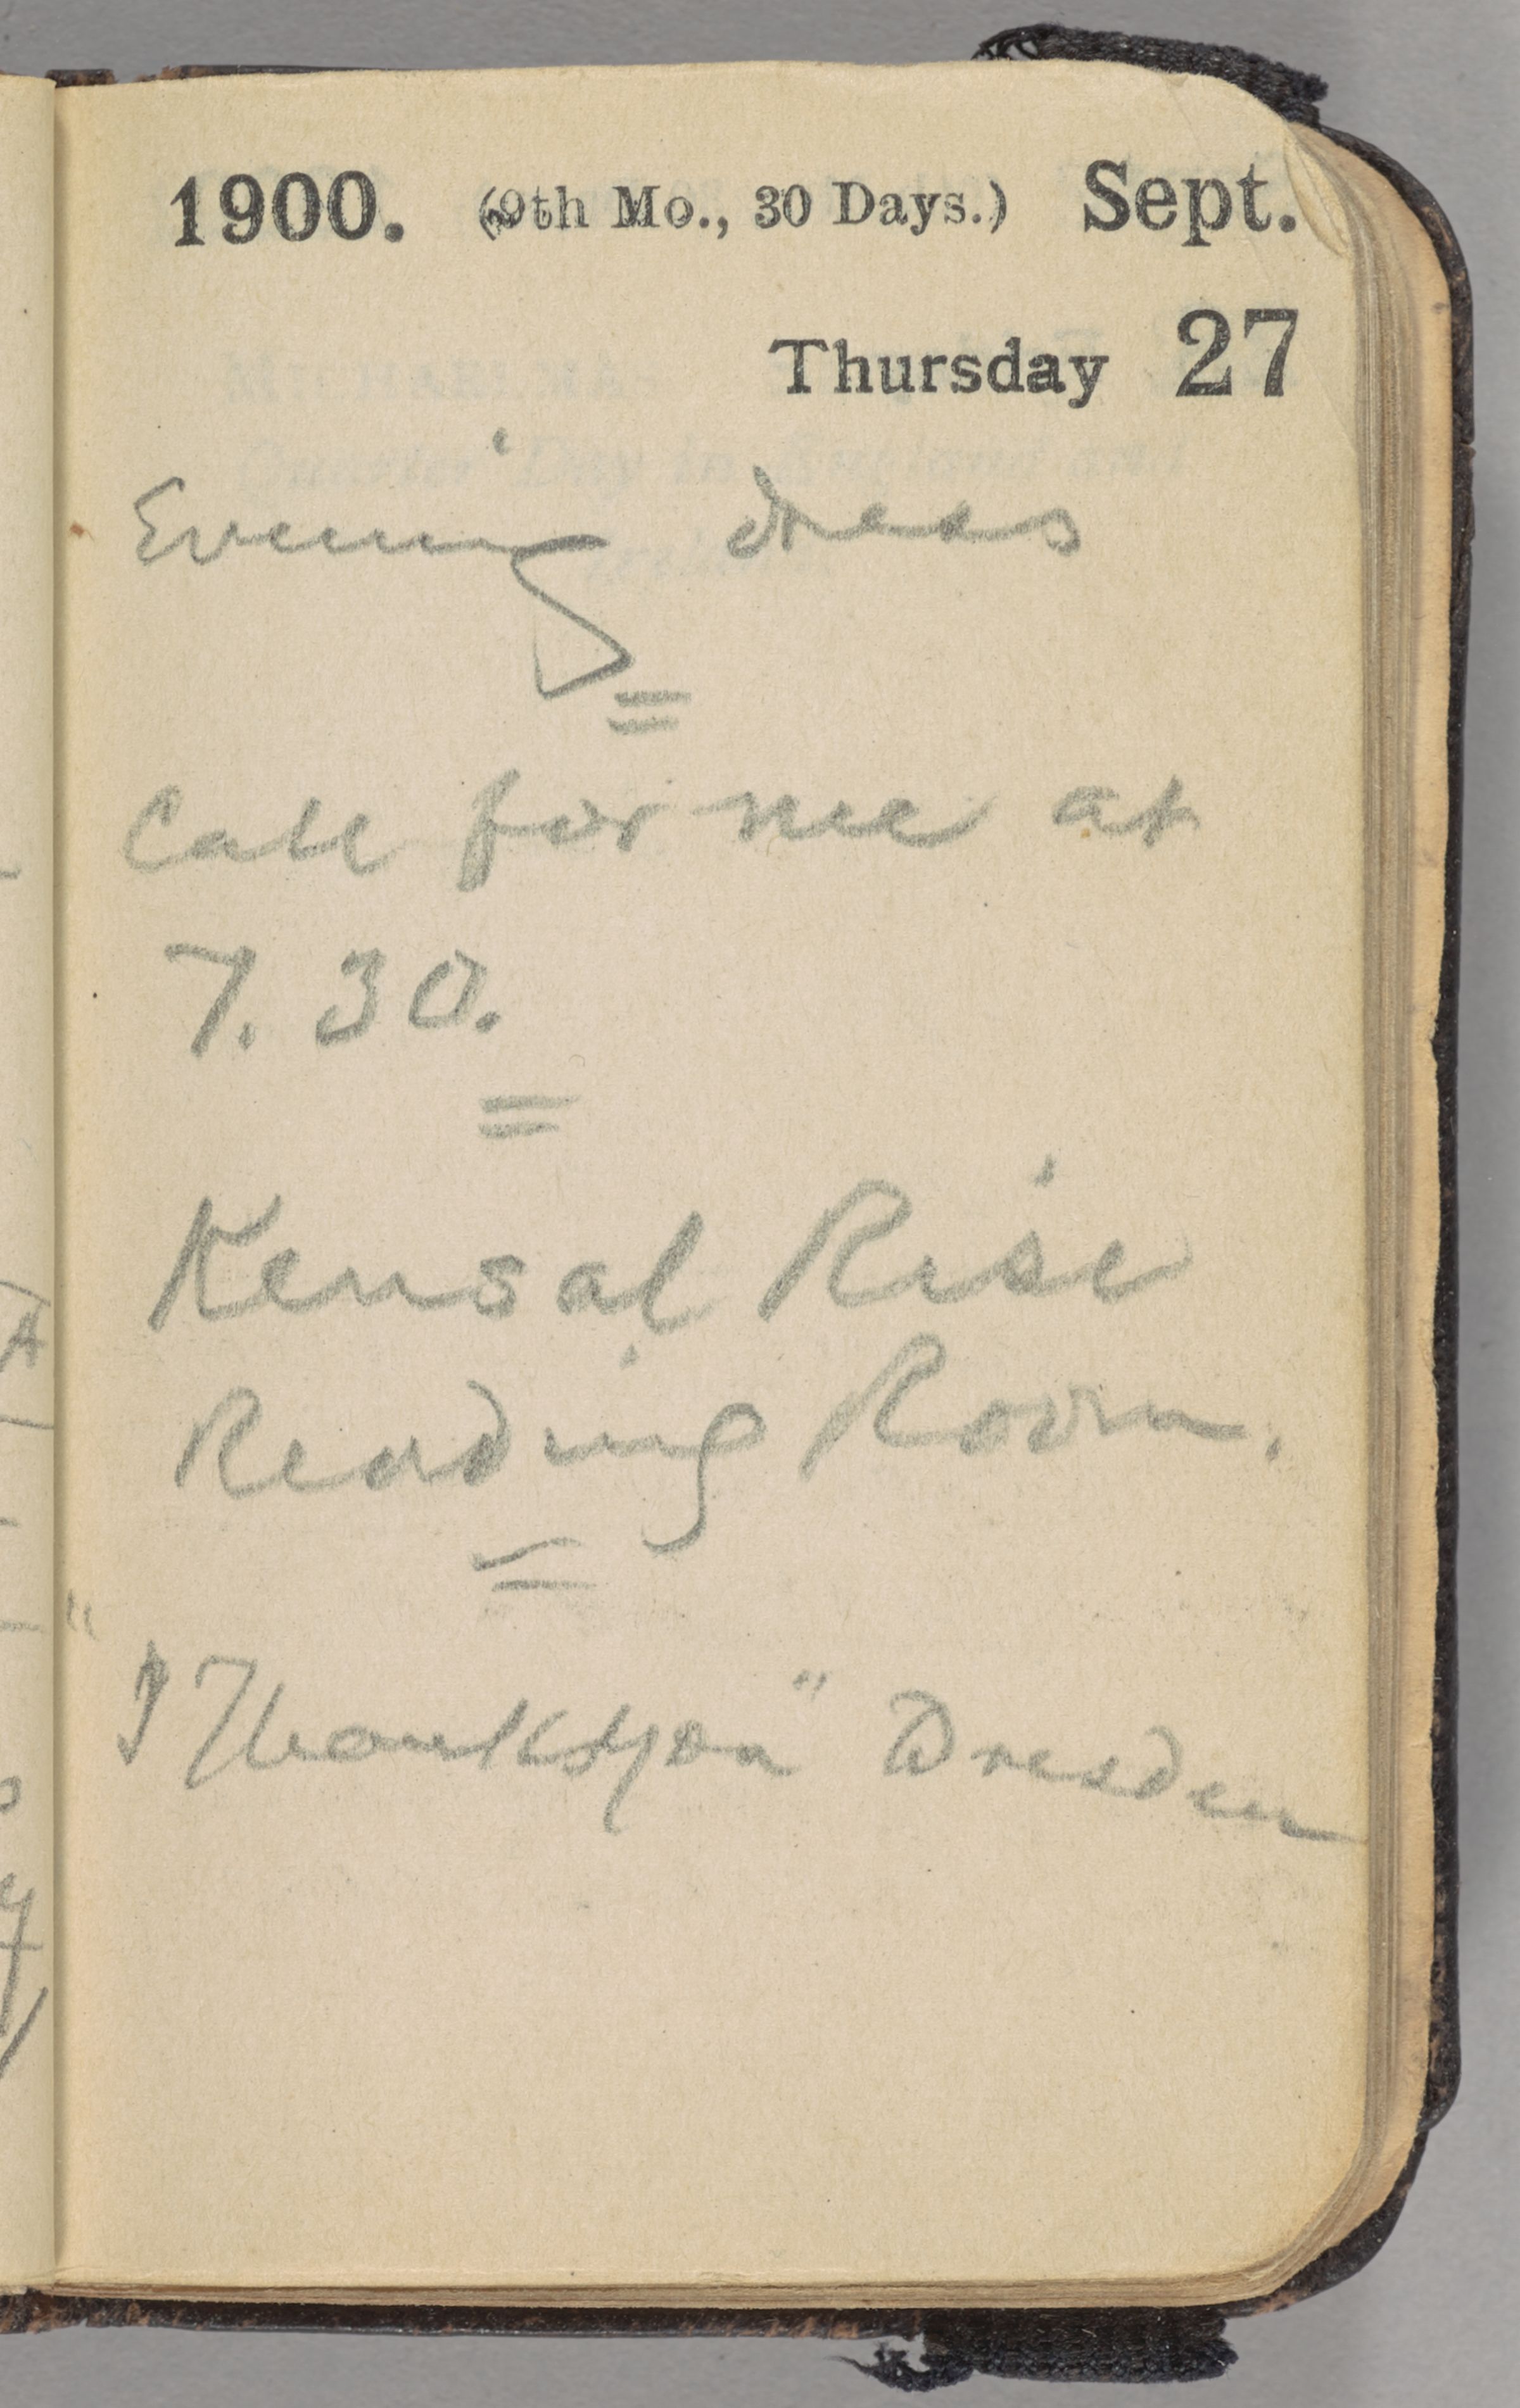 1900. (9th Mo., 30 Days.) Sept.
Thursday 27
Evening dress
=
Call for me at
7.30.
=
Kensal Rise
Reading Room.
=
"I Thank you" Dresden